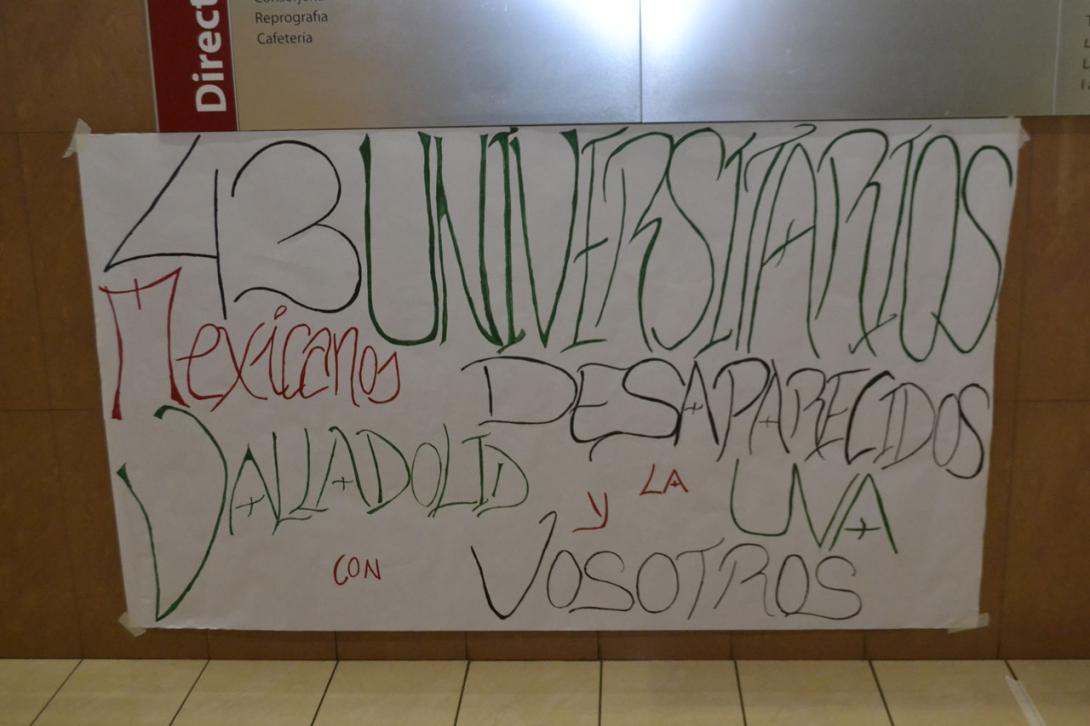 Conserjería
Reprografía
Cafetería
Direct
43 UNIVERSITARIOS
Mexicanos DESAPARECIDOS
VALLADOLID Y LA UVA
CON VOSOTROS